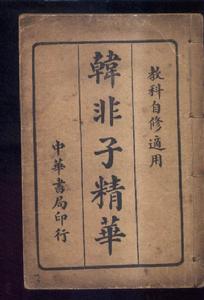 教科自修適用
韓非子精華
中華書局印行